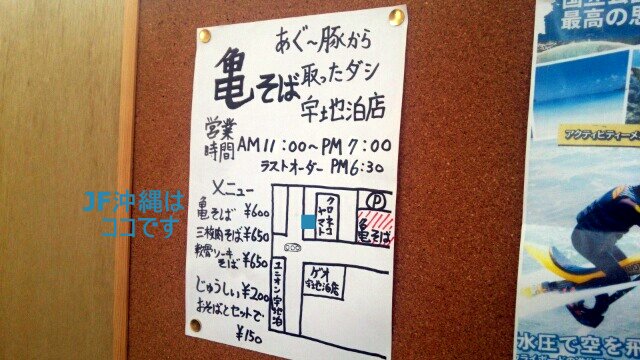 あぐ～豚から
取ったダシ
亀そば
宇地泊店
営業時間 AM11:00～PM7:00
ラストオーダー PM6:30
メニュー
亀そば ¥600
三枚肉そば ¥650
軟骨ソーキそば ¥650
じゅうしぃ ¥200
おそばとセットで
¥150
クロネコヤマト
P
亀そば
ユニオン宇地泊
ゲオ
宇地泊店
JF沖縄は
ココです
最高の思
アクティビティーメ
水圧で空を飛